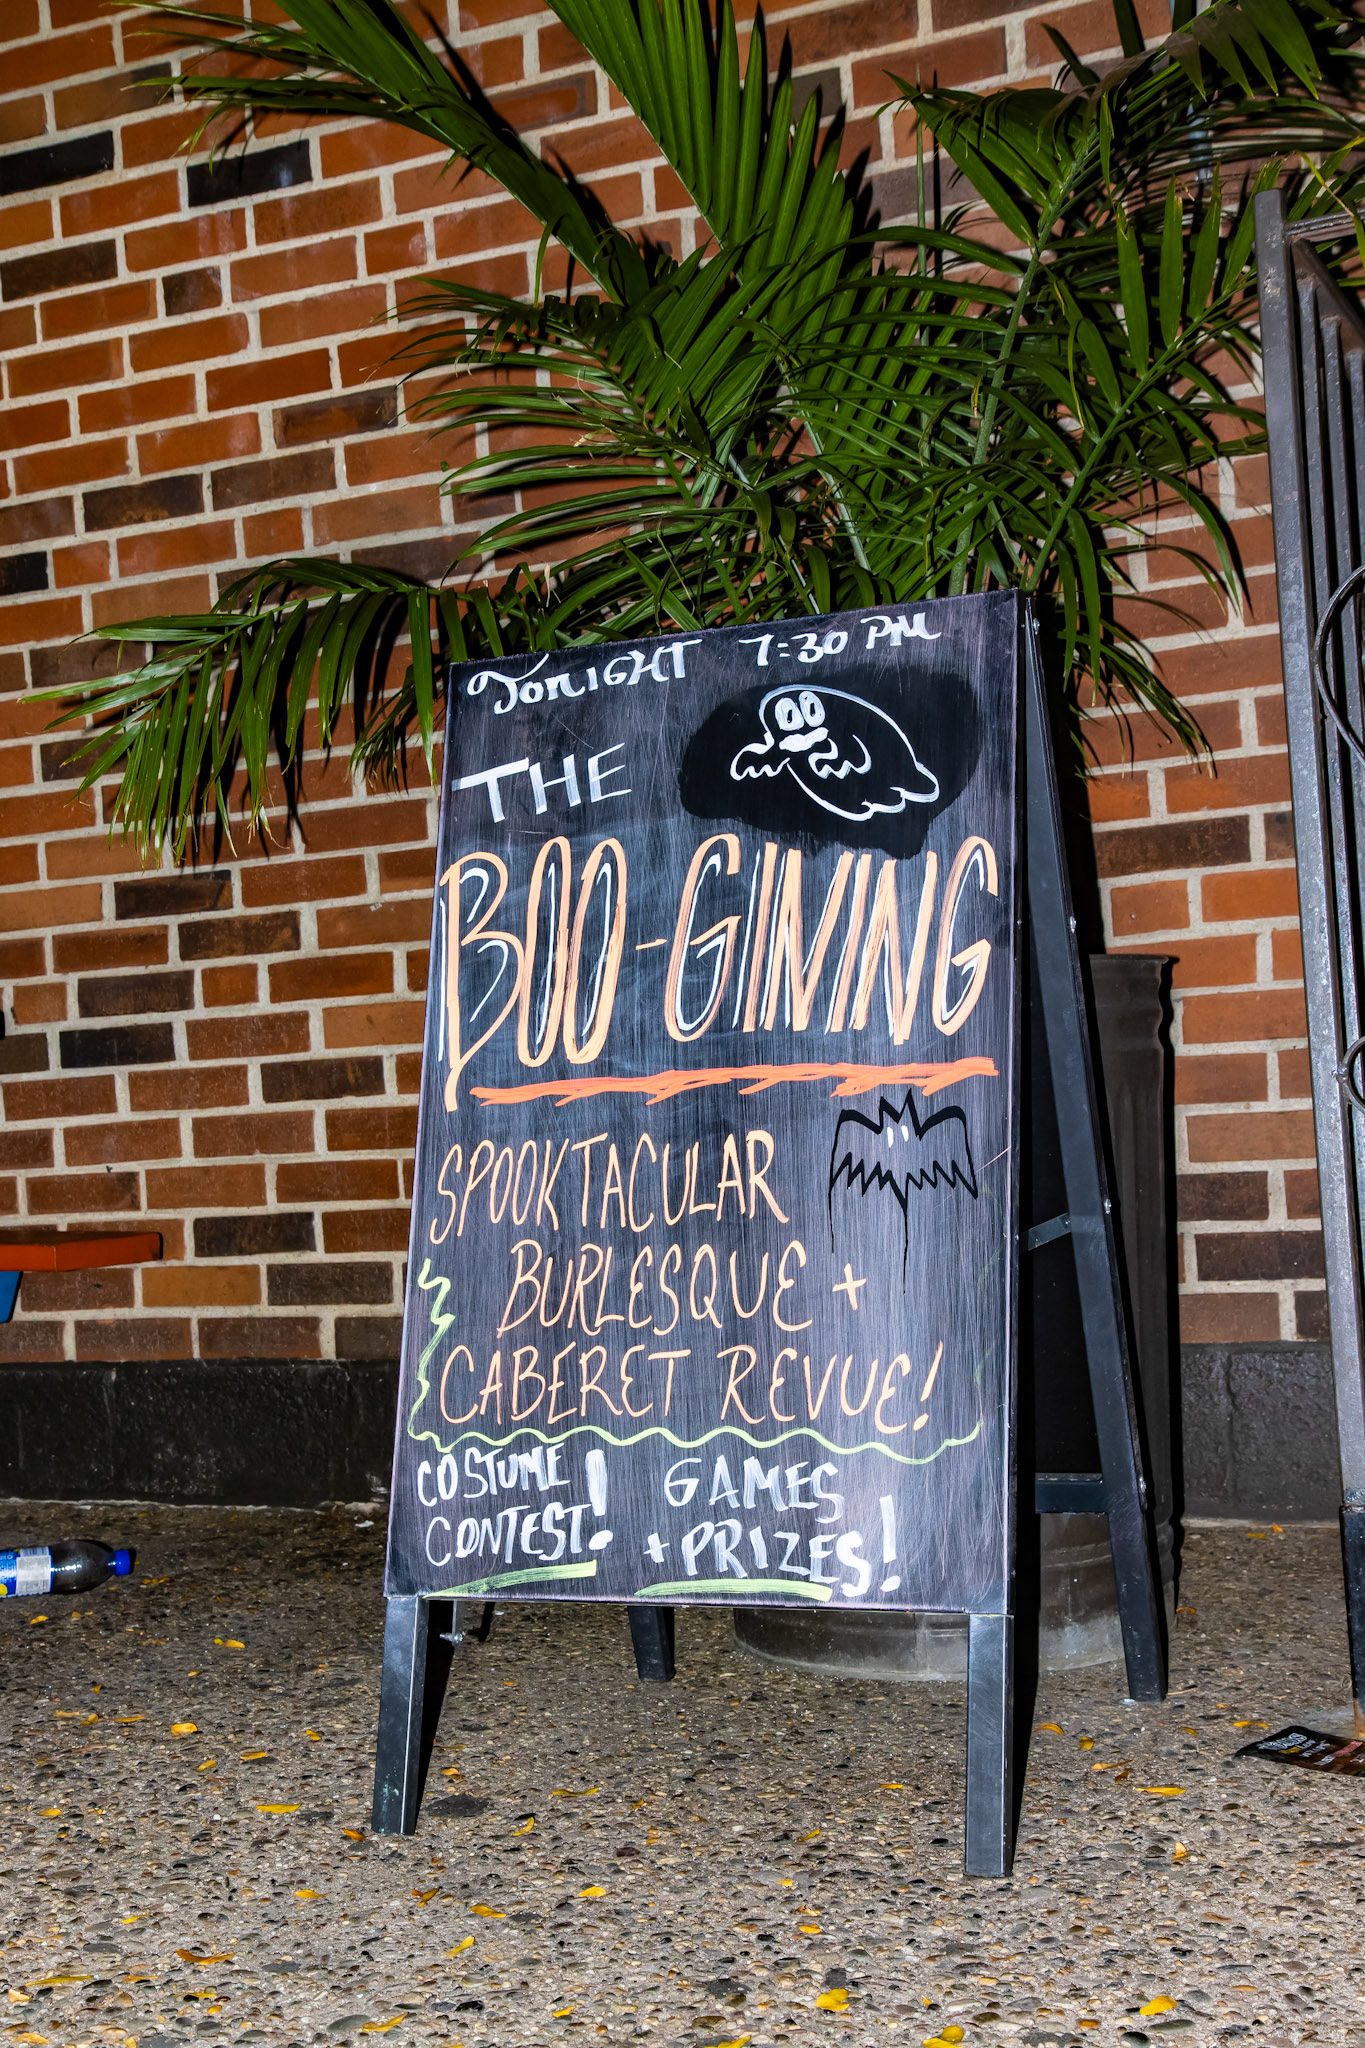 TONIGHT 7:30 PM
THE
BOO-GINING
SPOOKTACULAR
BURLESQUE +
CABERET REVUE!
COSTUME
CONTEST!
GAMES
+ PRIZES!